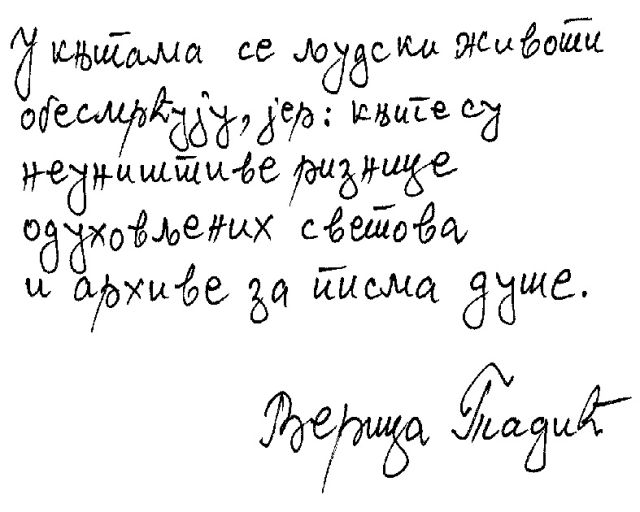 У књигама се људски животи
обесмрћују, јер: књиге су
неуништиве ризнице
одуховљених светова
и архиве за писма душе.
Верица Тадић